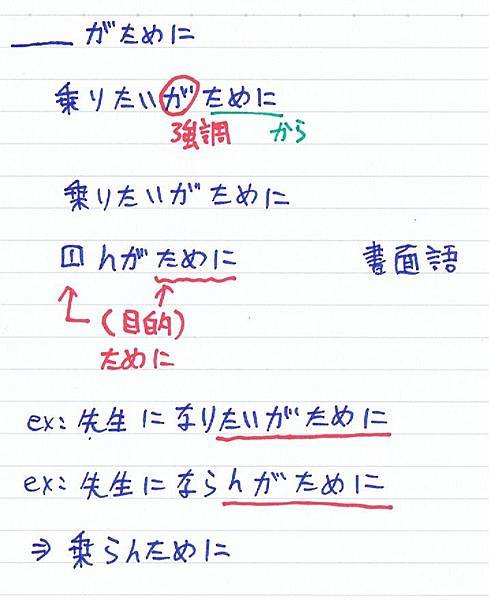 ＿＿＿がために
乗りたいがために
強調 から
乗りたいがために
1 んがために 書面語
(目的)
ために
ex: 先生になりたいがために
ex: 先生にならんがために
⇒ 乗らんために